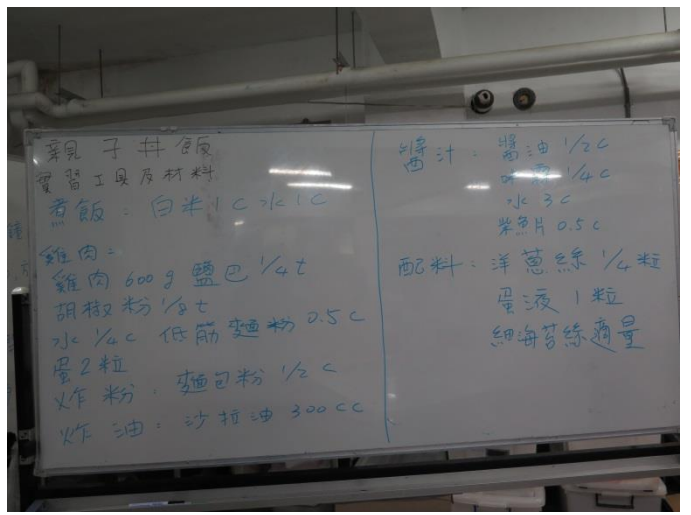 親子丼飯
實習工具及材料
煮飯：白米1C 水1C
雞肉：
雞肉 600g 鹽巴 1/4t
胡椒粉 1/8t
水 1/4c 低筋麵粉 0.5c
蛋2粒
炸粉：麵包粉 1/2 C
炸油：沙拉油 300cc
醬汁：醬油 1/2c
1/4c
水 3c
柴魚片 0.5c
配料：洋蔥絲 1/4粒
蛋液 1粒
細海苔絲適量